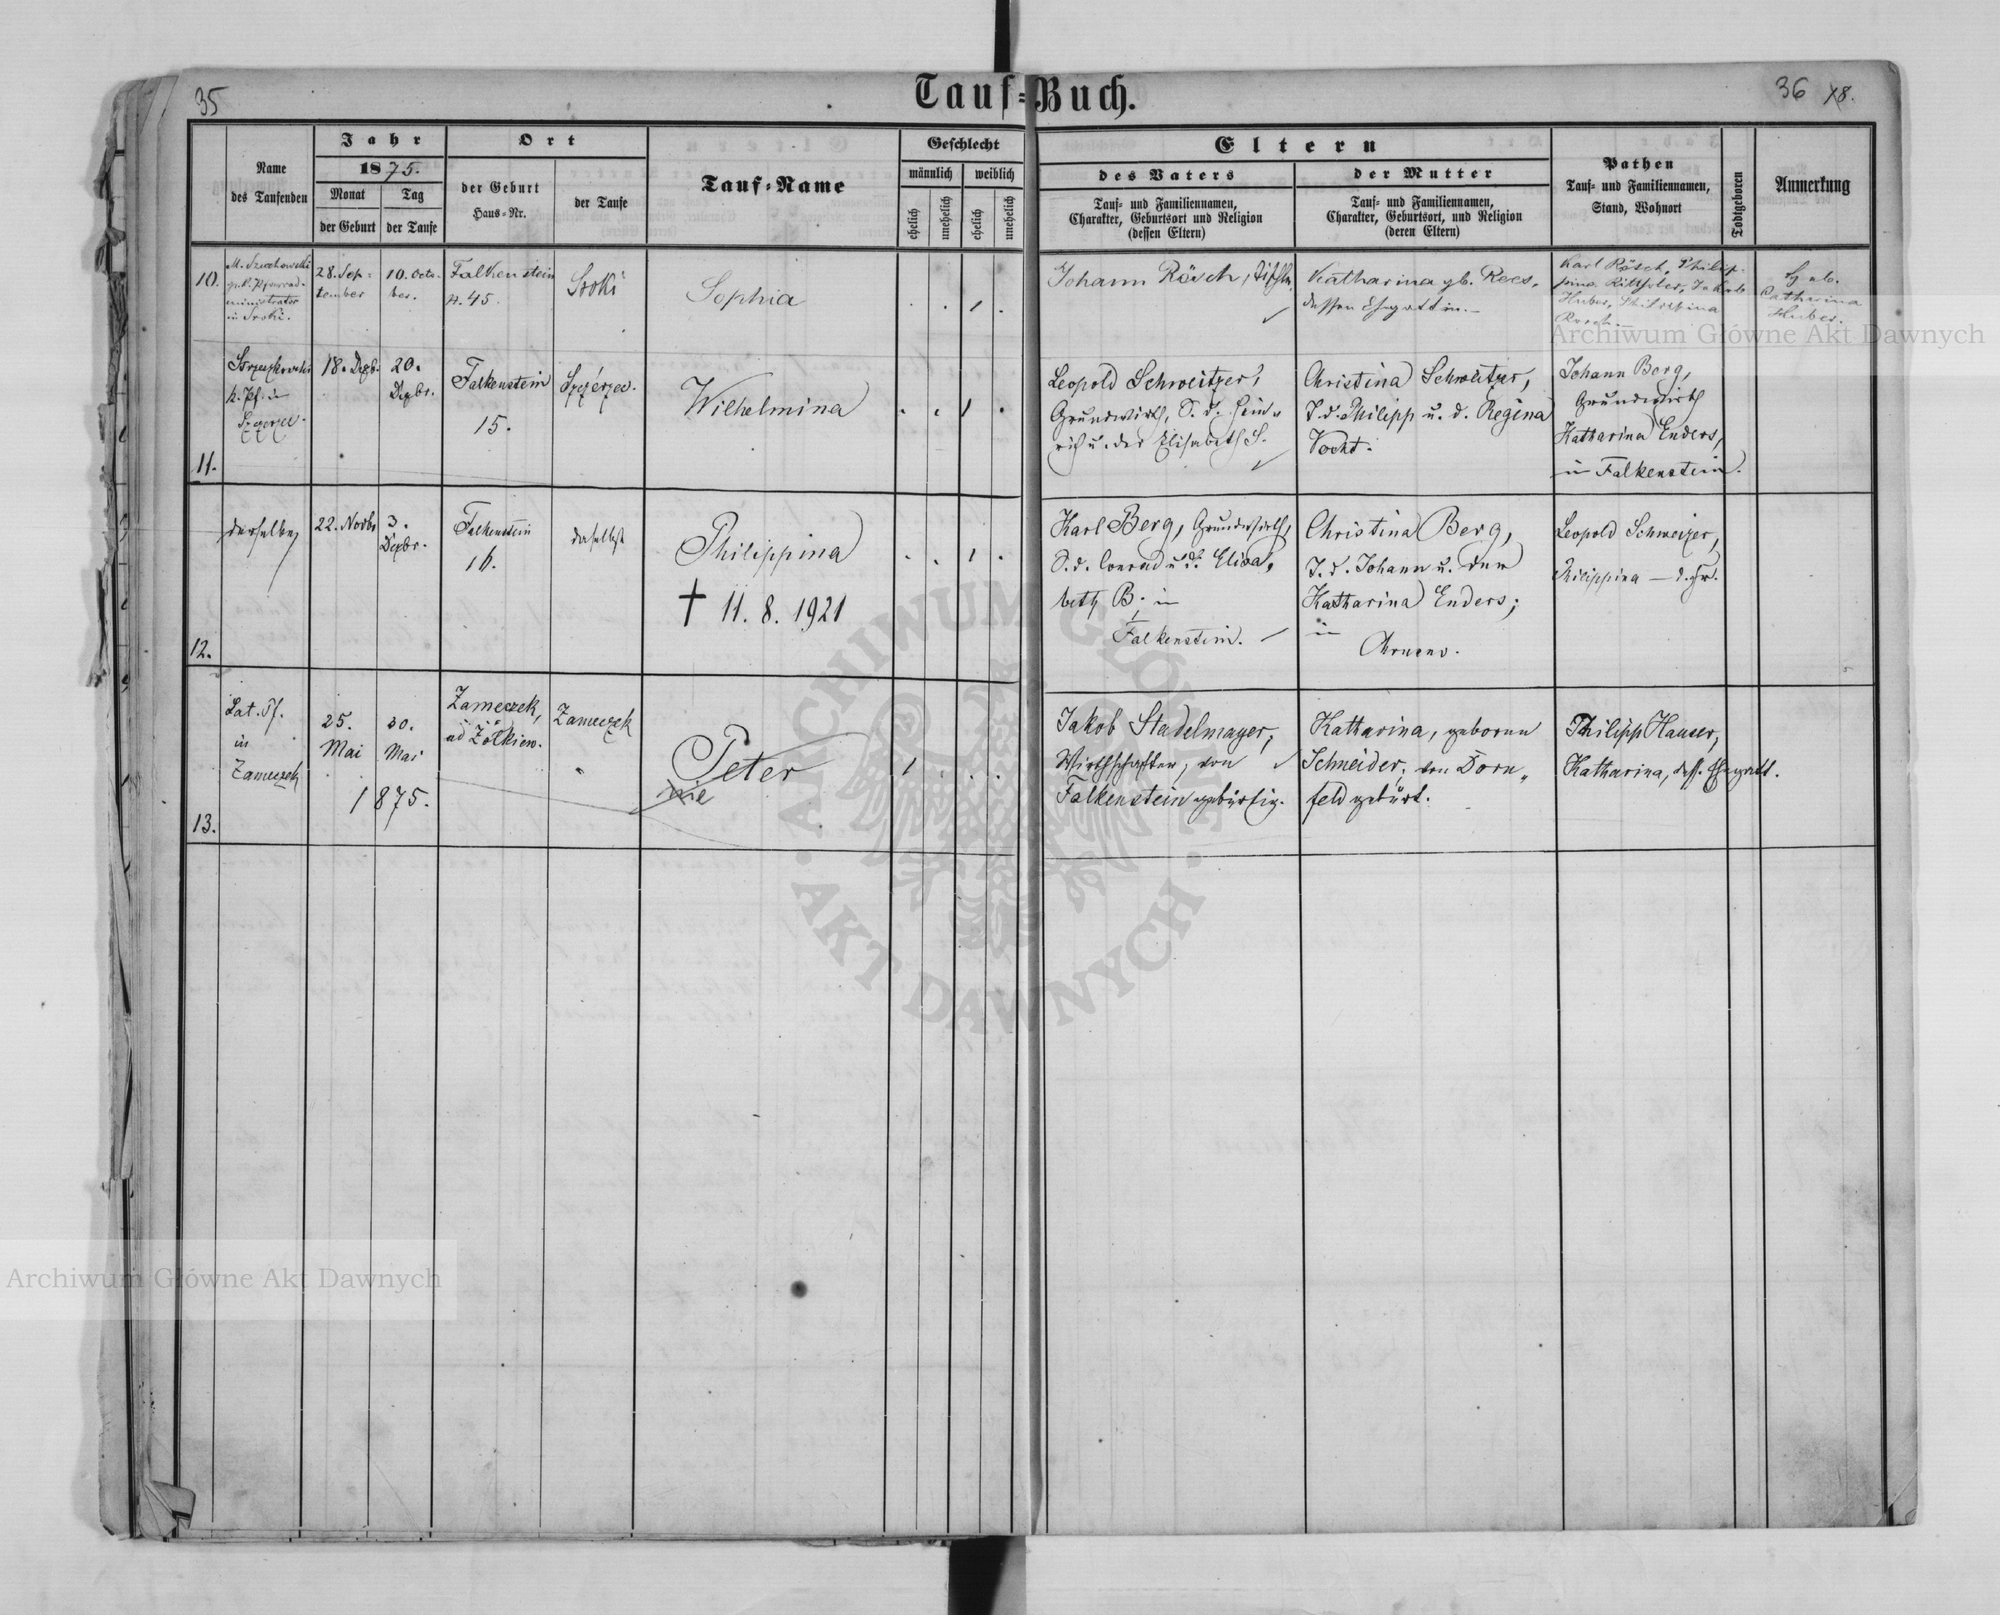 35
Tauf=Buch.
36 18.
Name
des Taufenden
Jahr
1875.
Monat
der Geburt
Tag
der Taufe
Ort
der Geburt
Haus=Nr.
der Taufe
Tauf=Name
Geschlecht
männlich
weiblich
ehelich
unehelich
ehelich
unehelich
Eltern
des Vaters
Tauf= und Familiennamen,
Charakter, Geburtsort und Religion
(dessen Eltern)
der Mutter
Tauf= und Familiennamen,
Charakter, Geburtsort, und Religion
(deren Eltern)
Pathen
Tauf= und Familiennamen,
Stand, Wohnort
Todtgeboren
Anmerkung
10.
in Sroki.
28. Sep=
tember
10. Octo-
ber.
Falkenstein
N. 45.
Sroki
Sophia
Johann Rösch,
Katharina gb. Rees,
dessen Ehegattin.
Karl Rösch, Philip-
pina Jakob
Huber, Philippina
Rösch.
Hebe.
Catharina
Huber.
11.
k. Pf. in
18. Dezb.
20.
Dezbr.
Falkenstein
15.
Szczérzec.
Wilhelmina
Leopold Schweitzer,
Grundwirth, S. d. Hein=
rich u. der Elisabeth S.
Christina Schweitzer,
T. d. Philipp u. d. Regina
Vocht.
Johann Berg,
Grundwirth
Katharina Enders,
in Falkenstein.
12.
derselbe
22. Novbr
3.
Dezbr.
Falkenstein
16.
daselbst
Philippina
† 11. 8. 1921
Karl Berg, Grundwirth,
S. d. Conrad u. d. Elisa=
beth B. in
Falkenstein.
Christina Berg,
T. d. Johann u. der
Katharina Enders;
in
Chrusno.
Leopold Schweizer,
Philippina
13.
Lat. Pf.
in
Zameczek
25.
Mai
30.
Mai
1875.
Zameczek,
ad Żółkiew.
Zameczek
Peter
nie
Jakob Stadelmayer,
Wirthschafter, von
Falkenstein gebürtig.
Katharina, geborne
Schneider, von Dorn=
feld gebürt.
Philipp Hauser,
Katharina, dess. Ehegatt.
Archiwum Główne Akt Dawnych
ARCHIWUM GŁÓWNE
AKT DAWNYCH
Archiwum Główne Akt Dawnych